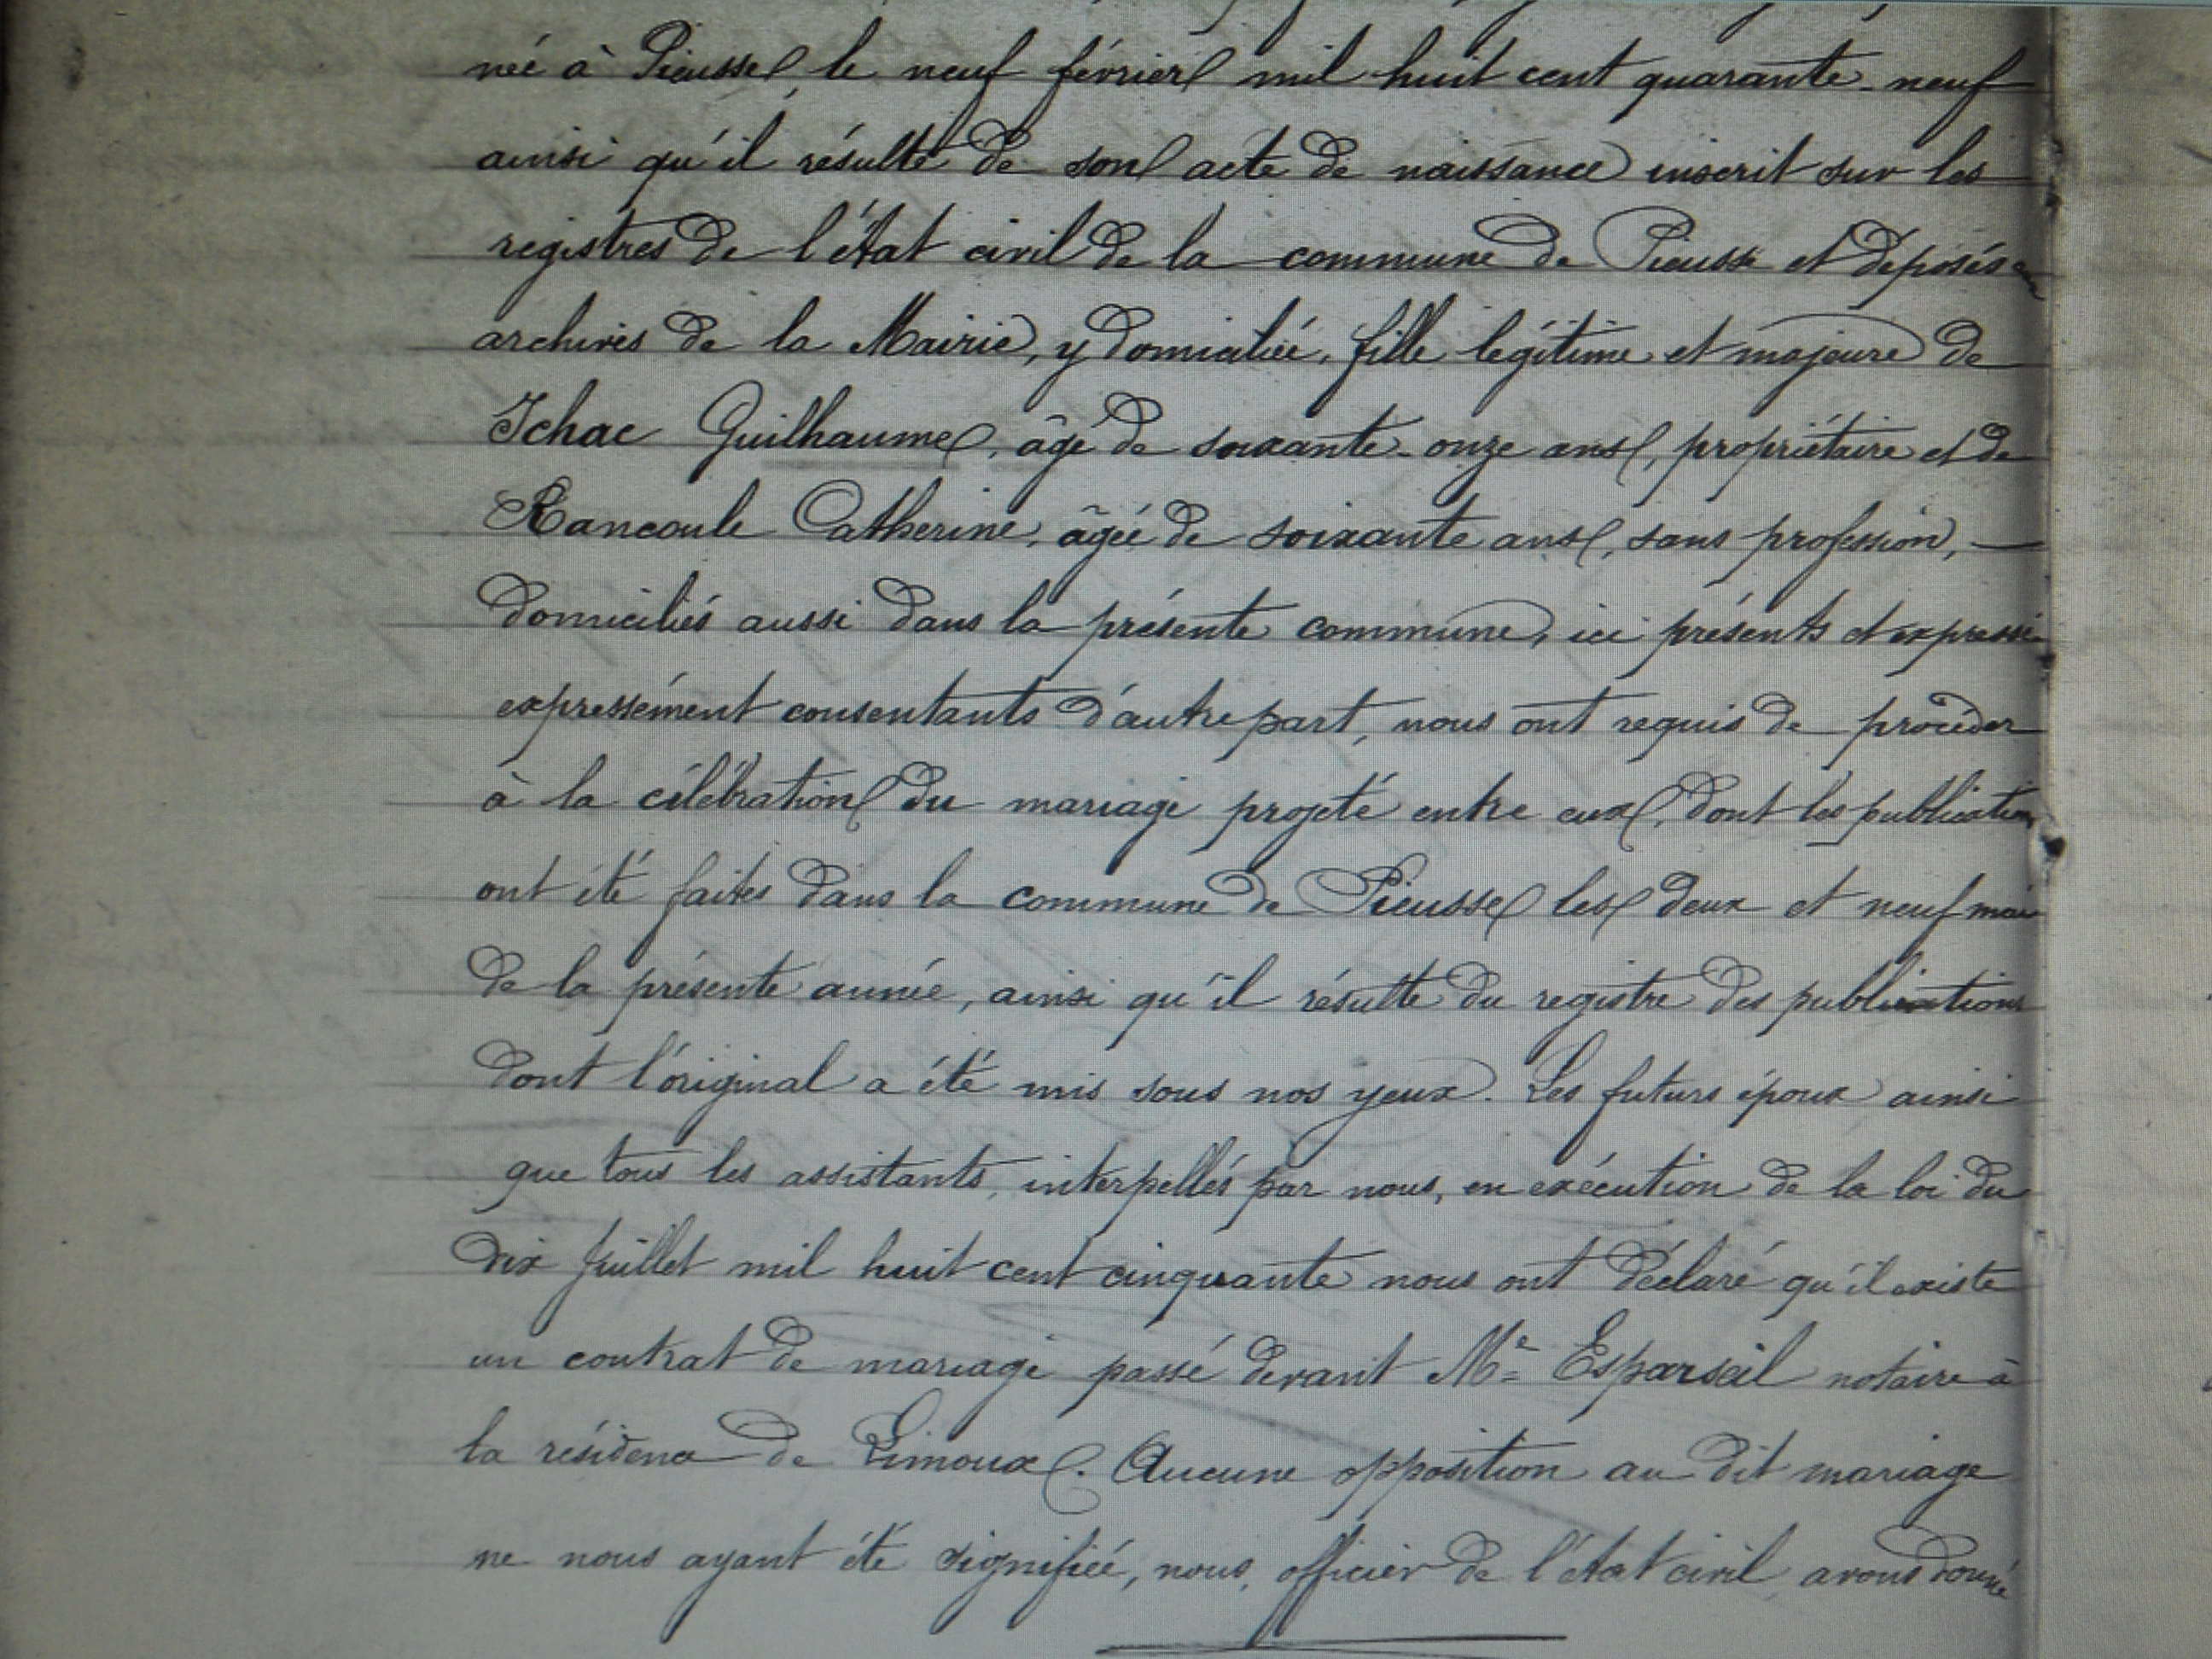 née à Pieusse, le neuf février mil huit cent quarante-neuf
ainsi qu'il résulte de son acte de naissance inscrit sur les
registres de l'état civil de la commune de Pieusse et déposés
archives de la Mairie, y domiciliée, fille légitime et majeure de
Ichac Guilhaume, âgé de soixante-onze ans, propriétaire et de
Rancoule Catherine, âgée de soixante ans, sans profession, —
domiciliés aussi dans la présente commune, ici présents et expressé
expressément consentants d'autre part, nous ont requis de procéder
à la célébration du mariage projeté entre eux, dont les publications
ont été faites dans la commune de Pieusse les deux et neuf mai
de la présente année, ainsi qu'il résulte du registre des publications
dont l'original a été mis sous nos yeux. Les futurs époux ainsi
que tous les assistants, interpellés par nous, en exécution de la loi du
dix Juillet mil huit cent cinquante nous ont déclaré qu'il existe
un contrat de mariage passé devant Me Esparseil notaire à
la résidence de Limoux. Aucune opposition au dit mariage
ne nous ayant été signifiée, nous, officier de l'état civil, avons donné